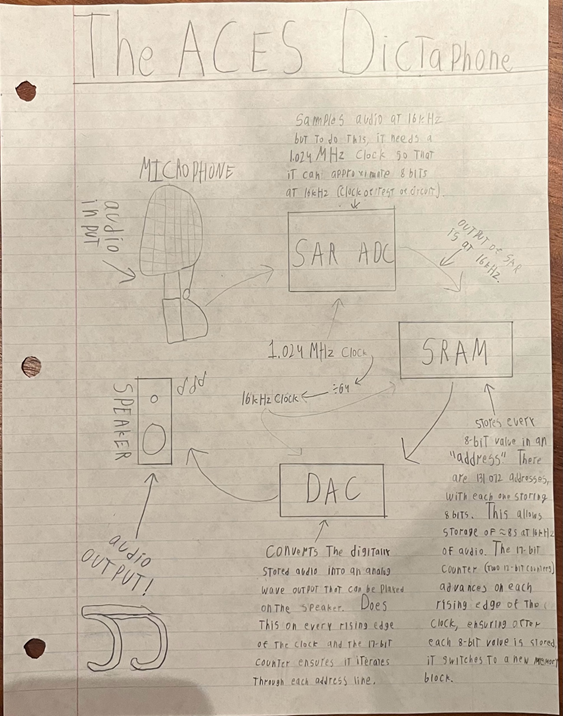 The ACES Dictaphone
Samples audio at 16kHz
but to do this, it needs a
1.024 MHz Clock so that
it can approximate 8 bits
at 16kHz
MICROPHONE
audio
input
SAR ADC
OUTPUT OF SAR
IS AT 16kHz.
1.024 MHz Clock
÷64
16kHz Clock
SRAM
SPEAKER
DAC
audio
OUTPUT!
stores every
8-bit value in an
"address" There
are 131,072 addresses,
with each one storing
8 bits. This allows
storage of ≈8s at 16kHz
of audio. The 17-bit
counter (two 12-bit counters)
advances on each
rising edge of the
clock, ensuring after
each 8-bit value is stored,
it switches to a new memory
block.
Converts the digitally
stored audio into an analog
wave output that can be played
on the speaker. Does
this on every rising edge
of the clock and the 17-bit
counter ensures it iterates
through each address line.